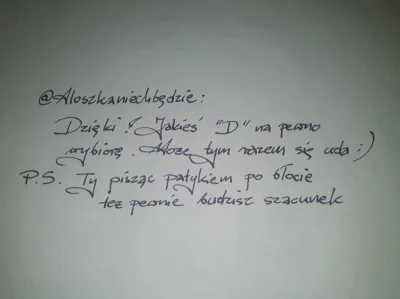 @Aloszkaniechbędzie:
Dzięki! Jakieś "D" na pewno
wybiorę. Może tym razem się uda :)
P.S. Ty pisząc patykiem po błocie
też pewnie budzisz szacunek